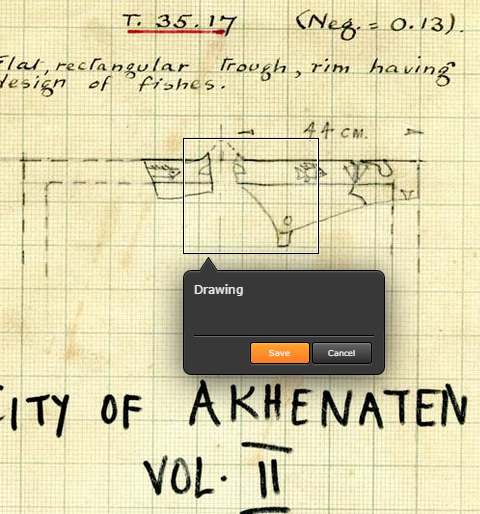 T. 35.17 (Neg. = 0.13).
Flat, rectangular trough, rim having
design of fishes.
44 CM.
Drawing
Save Cancel
CITY OF AKHENATEN
VOL. II